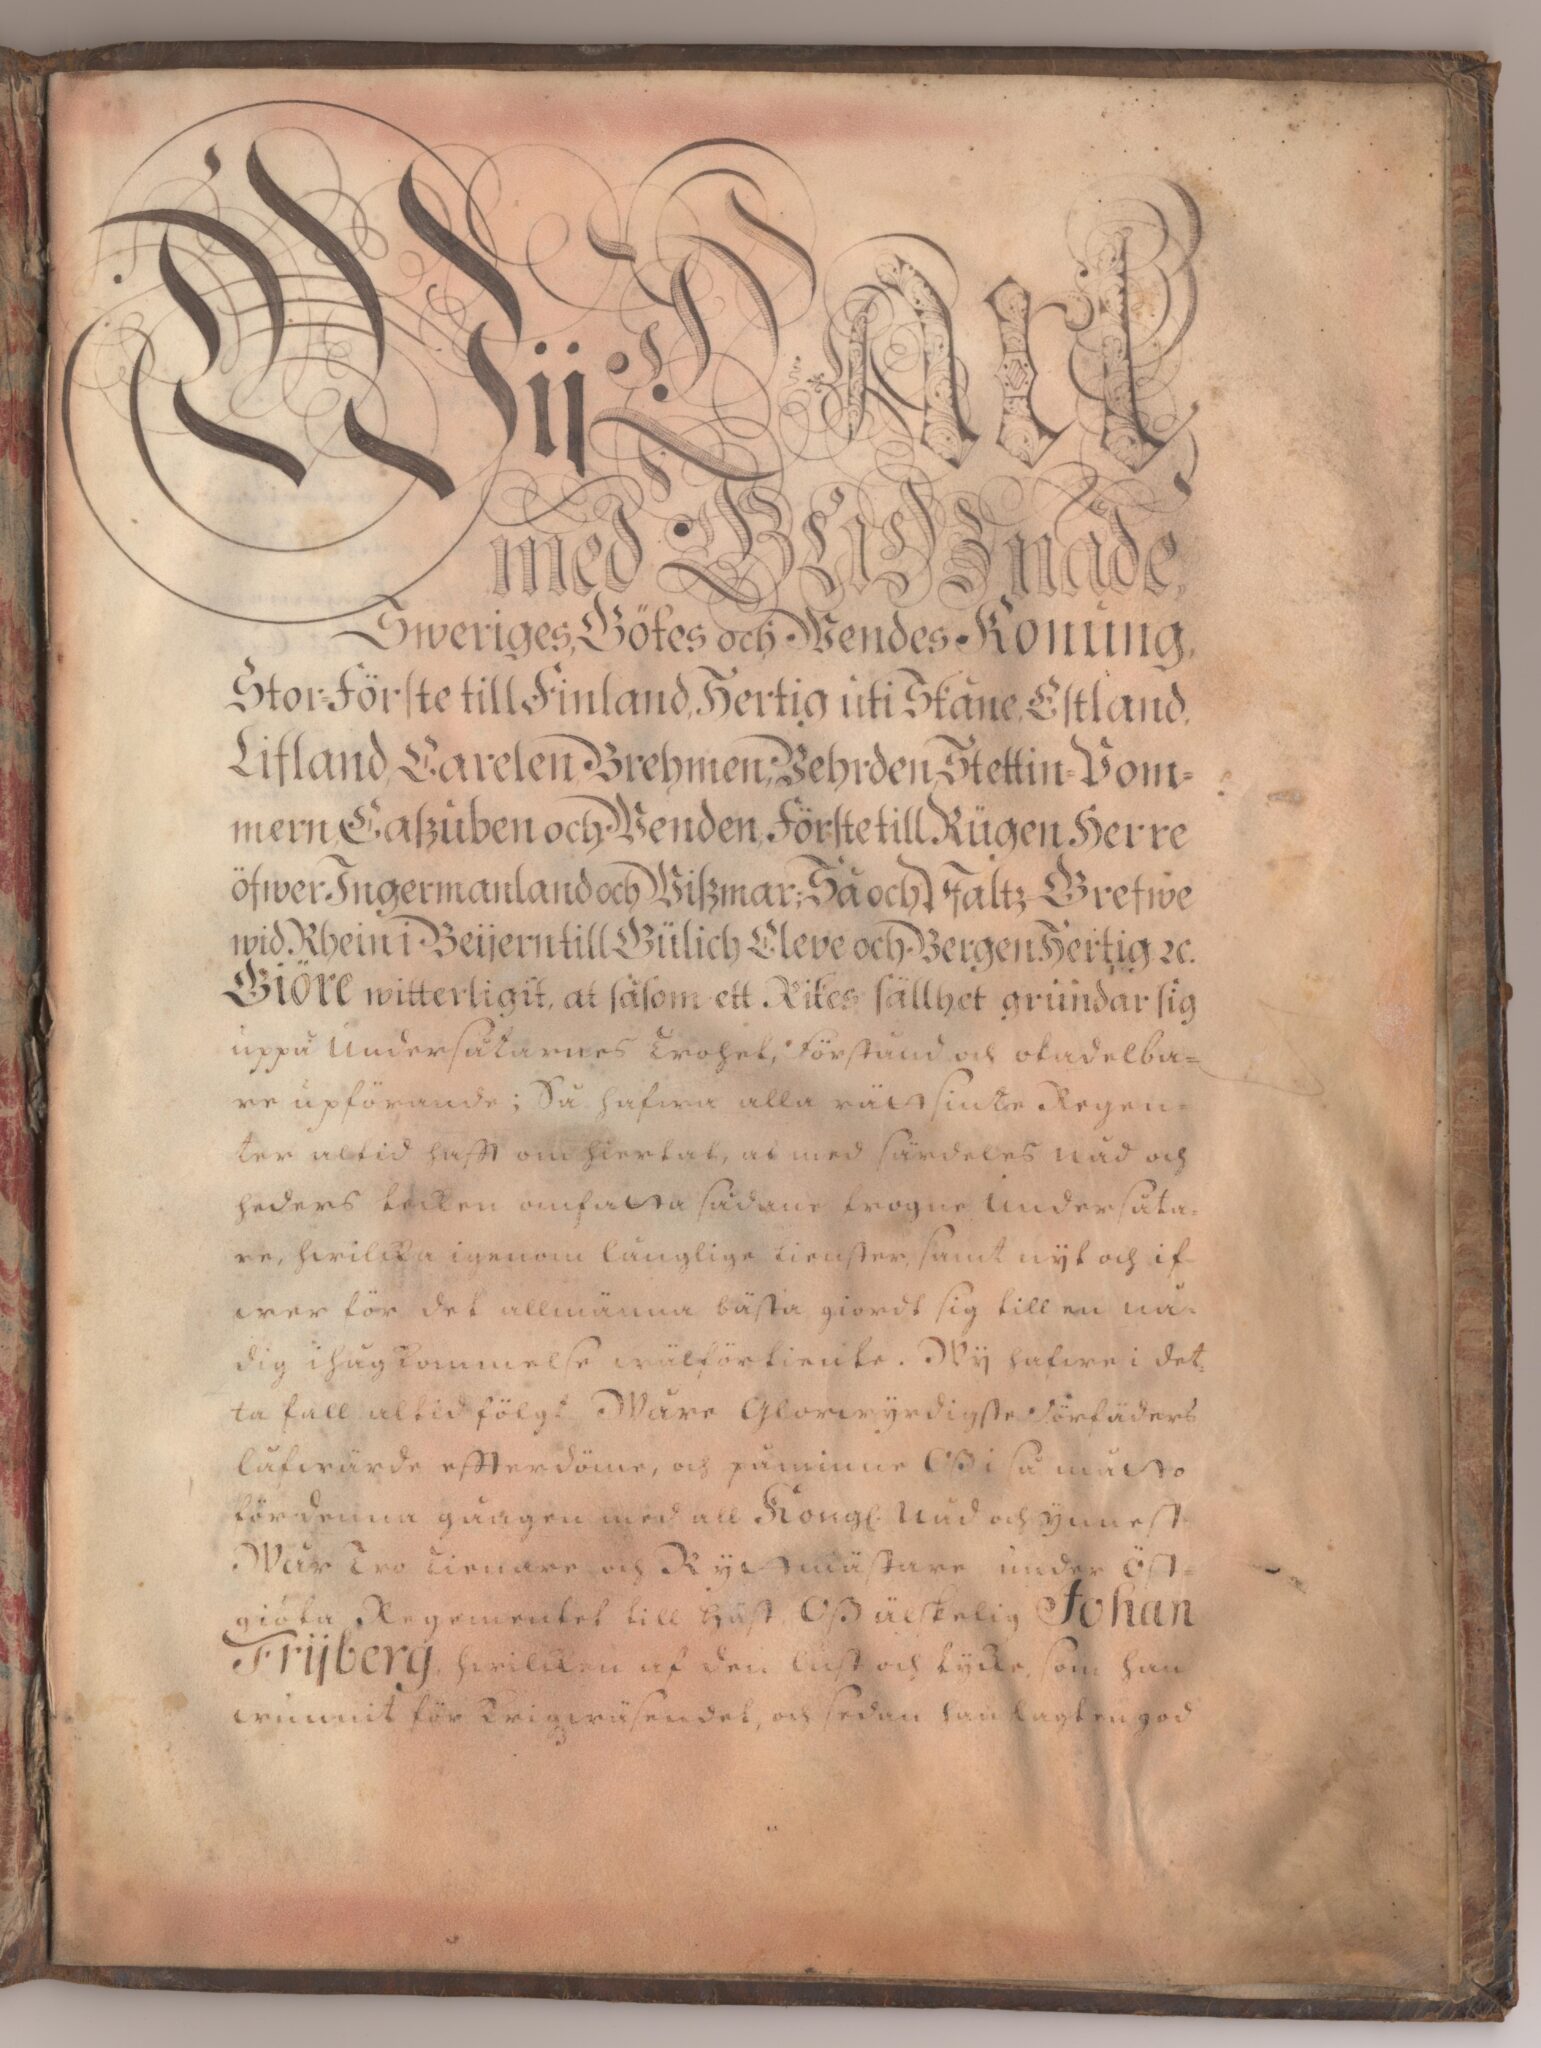 Wij Carl
med Gudz nåde,
Sweriges, Götes och Wendes Konung,
Stor-Förste till Finland, Hertig uti Skåne, Estland,
Lifland, Carelen, Brehmen, Vehrden, Stettin-Pom-
mern, Caßuben och Wenden, Förste till Rügen Herre
öfwer Ingermanland och Wißmar; Så och Pfaltz-Grefwe
wid Rhein i Beijern till Gülich Cleve och Bergen Hertig ꝛc.
Giöre witterligit, at såsom ett Rikes sällhet grundar sig
uppå Undersåtarnes Trohet, Förstånd och otadelba-
re upförande; Så hafwa alla rättsinte Regen-
ter altid hafft om hiertat, at med särdeles nåd och
heders tecken omfatta sådane trogne Undersåta-
re, hwilcka igenom långlige tienster, samt nijt och if-
wer för det allmänna bästa giordt sig till en nå-
dig ihugkommelse wälförtiente. Wij hafwe i det-
ta fall altid fölgt Wåre Glorwyrdigste Förfäders
låfwärde effterdöme, och påminne Oß i så måtto
för denna gången med all Kongl. Nåd och ynnest
Wår Tro Tienare och Ryttmästare under Öst-
giöta Regementet till Häst, Oß älskelig Johan
Frijberg, hwilcken af den lust och tycke, som han
wunnit för Krigzwäsendet, och sedan han lagt en god